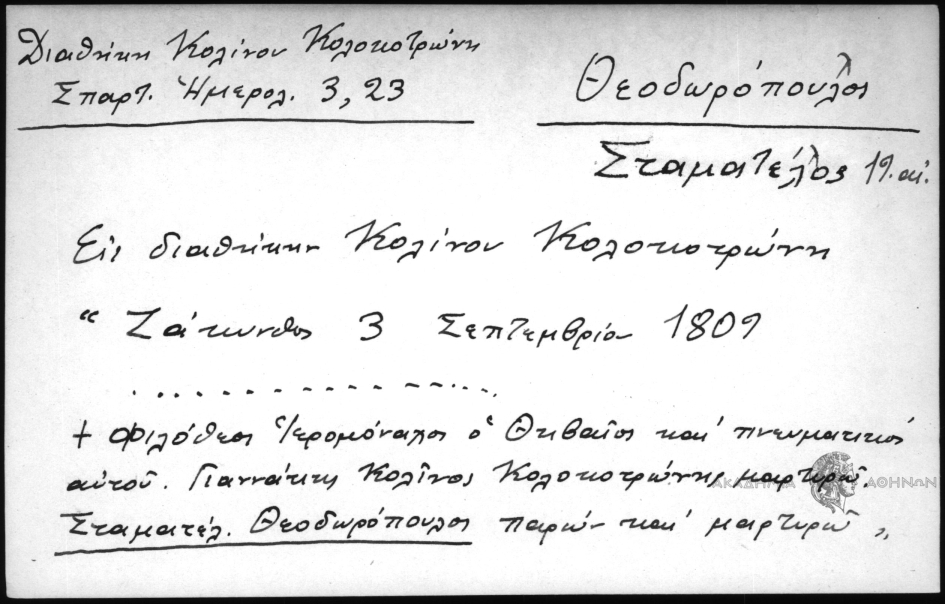 Διαθήκη Κολίνου Κολοκοτρώνη
Σπαρτ. Ἡμερολ. 3, 23
Θεοδωρόπουλος
Σταματέλος 19. αἰ.
Εἰς διαθήκην Κολίνου Κολοκοτρώνη
“ Ζάκυνθος 3 Σεπτεμβρίου 1809
. . . . . . . . . . - - . . . .
+ Φιλόθεος Ἱερομόναχος ὁ Θηβαῖος καὶ πνευματικὸς
αὐτοῦ. Γιαννάκης Κολῖνος Κολοκοτρώνης μαρτυρῶ.
Σταματέλ. Θεοδωρόπουλος παρὼν καὶ μαρτυρῶ „
ΑΚΑΔΗΜΙΑ ΑΘΗΝΩΝ